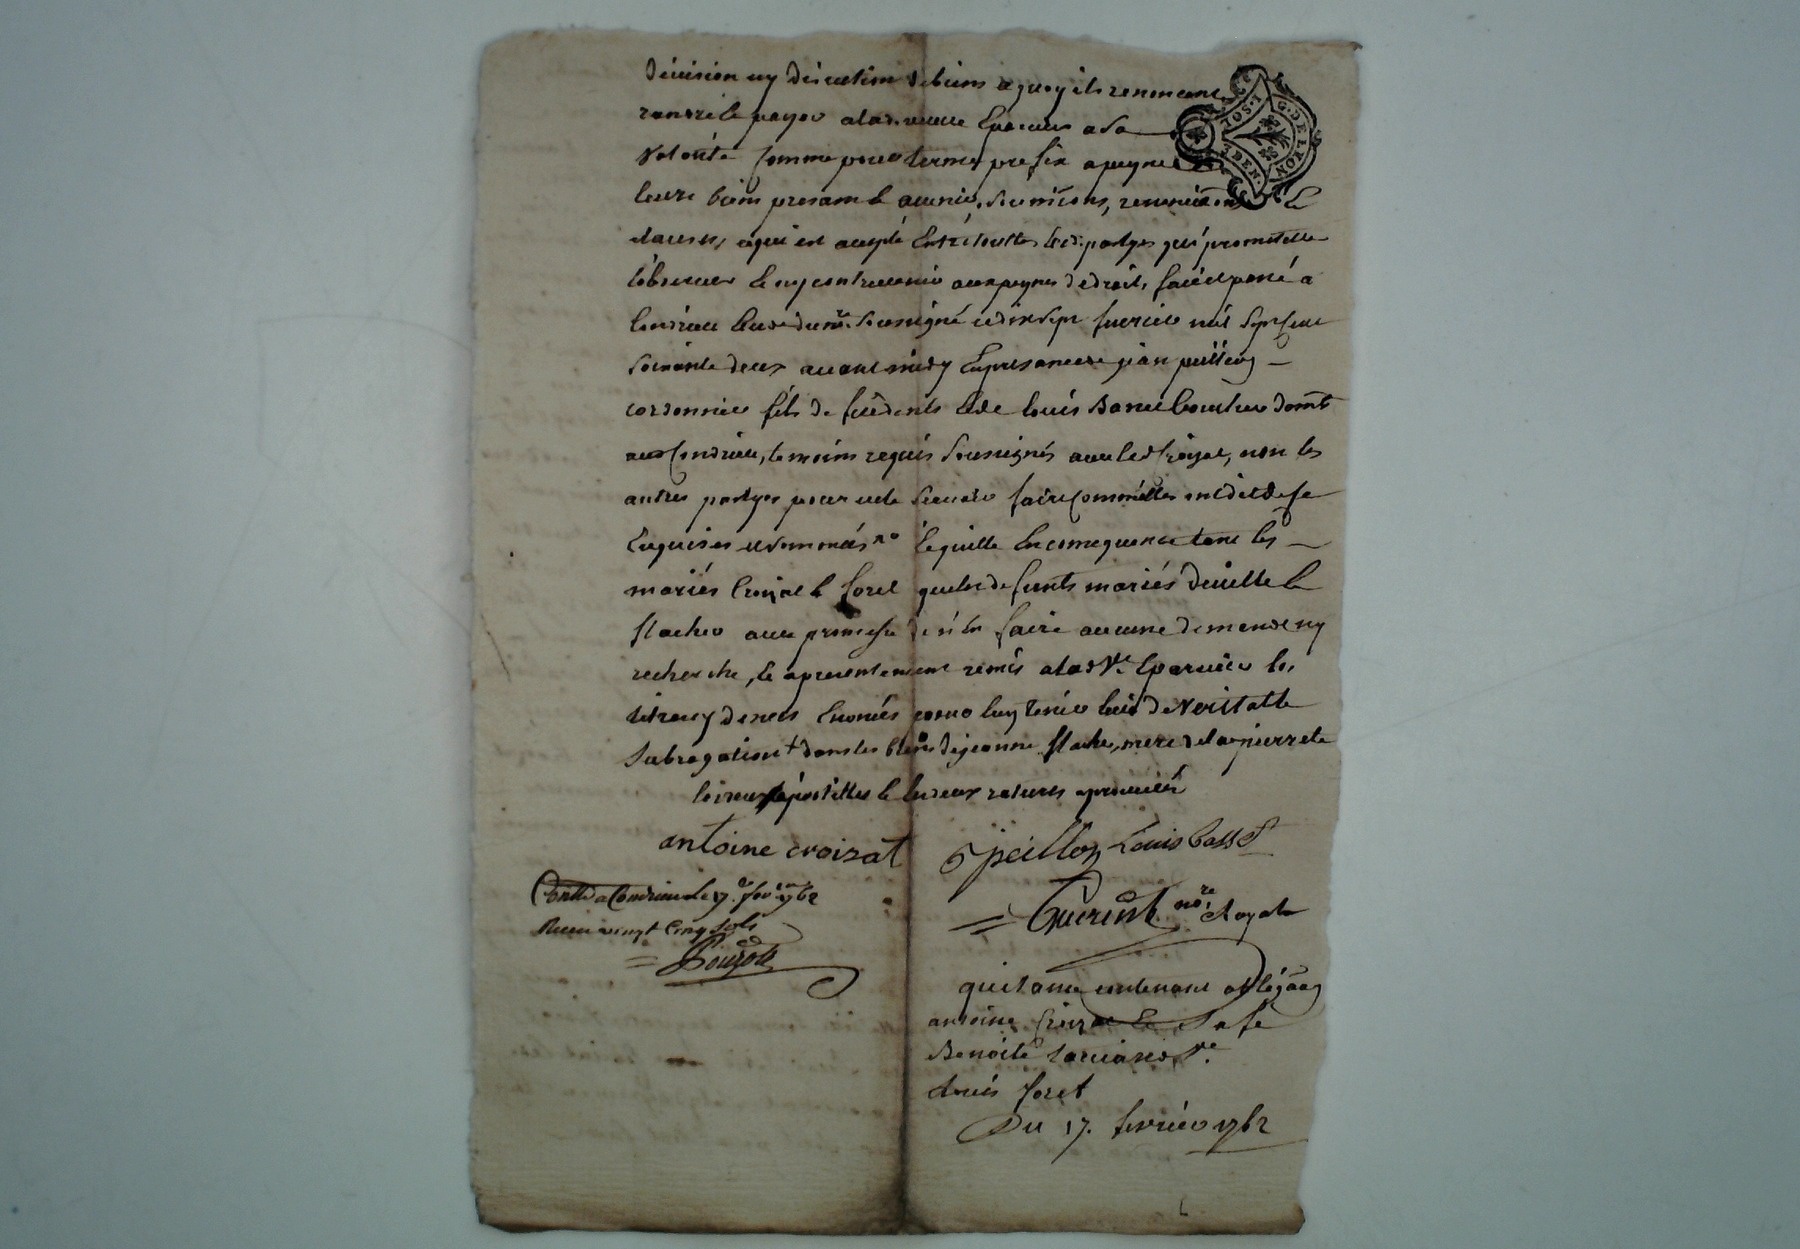 division ny discution de biens a quoy ils renoncent
randre le payer a lad. veuve Eparvier a sa
G. DE LYON
IOS. I
DEN.
volonté comme pour terme prefix a peyne
leurs biens presant & avenir, soumissions, renonciaôns &
clauses, ce qui est accepté Entre touttes lesd. partyes qui promettent
l'observer & ny contrevenir aux peynes de droit, fait et passé a
Condrieu Etude du nre. soussigné ce dix sept fuevrier mil sept cent
soixante deux avant midy En presance de jean peillon
cordonnier fils de feu denis & de louis Basset boucher domts
aud Condrieu, temoins requis soussignés avec led Croizat, non les
autres partyes pour ne le sçavoir faire comm'elles ont dit de ce
Enquises et sommées ro Équitte En consequence tant les
mariés Croizat & foret que les defunts mariés deville &
flacher avec promesse de n'en faire aucune demande ny
recherche, & apresentement remis a lad Ve Eparvier les
titres cy dessus Enoncés pour luy tenir lieu de veritable
subrogation + dans les biens de jeanne flacher, mere de lad pierrete
les deux apostilles & les deux ratures aprouvées
antoine croizat
Jpeillon Louis Basset
Guerin not. re Royal
Contllé a Condrieu le 17.e fev.er 1762
Receu vingt Cinq sols
quitance contenant obligaôn
antoine Croizat & sa fe
Benoite Ve.
louis foret
Du 17. fevrier 1762